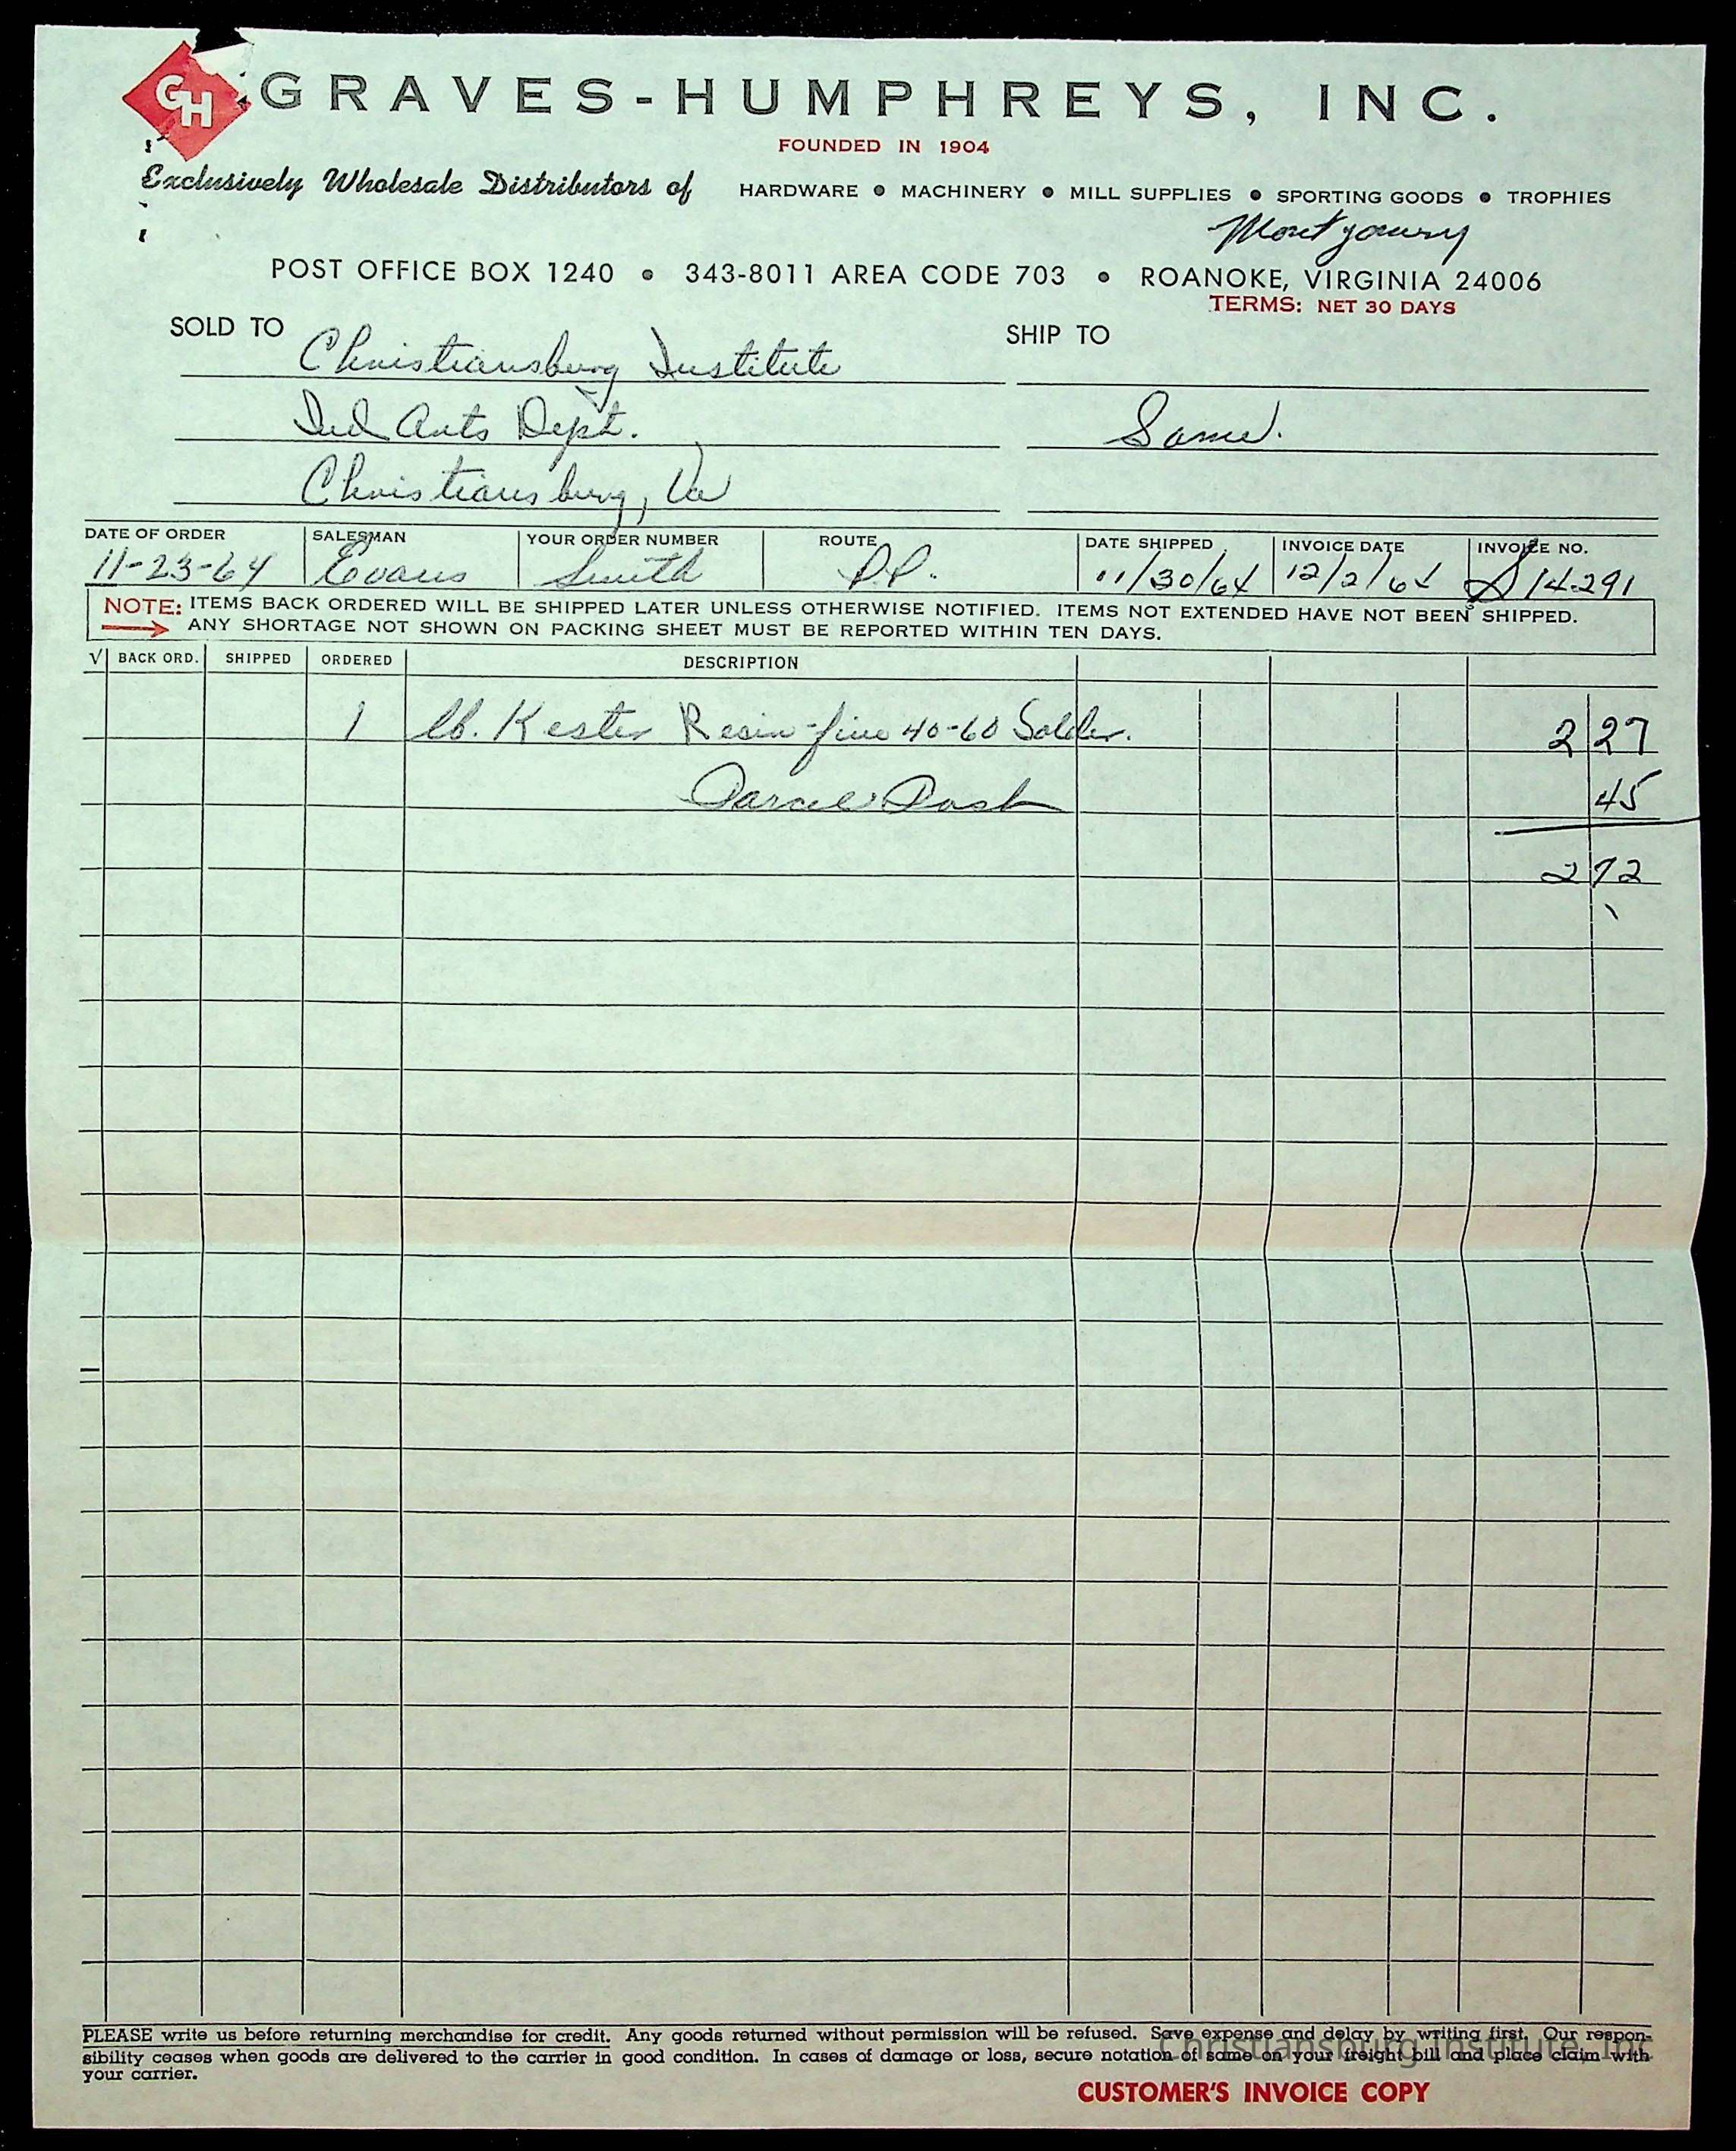 GH GRAVES-HUMPHREYS, INC.
FOUNDED IN 1904
Exclusively Wholesale Distributors of HARDWARE • MACHINERY • MILL SUPPLIES • SPORTING GOODS • TROPHIES
Montgomery
POST OFFICE BOX 1240 • 343-8011 AREA CODE 703 • ROANOKE, VIRGINIA 24006
TERMS: NET 30 DAYS
SOLD TO Christiansburg Institute SHIP TO
Ind Arts Dept. Same.
Christiansburg, Va
DATE OF ORDER SALESMAN YOUR ORDER NUMBER ROUTE DATE SHIPPED INVOICE DATE INVOICE NO.
11-23-64 Evans Smith P.P. 11/30/64 12/2/64 14291
NOTE: ITEMS BACK ORDERED WILL BE SHIPPED LATER UNLESS OTHERWISE NOTIFIED. ITEMS NOT EXTENDED HAVE NOT BEEN SHIPPED.
ANY SHORTAGE NOT SHOWN ON PACKING SHEET MUST BE REPORTED WITHIN TEN DAYS.
√ BACK ORD. SHIPPED ORDERED DESCRIPTION
1 lb. Kester Resin-five 40-60 Solder. 2 27
Parcel Post 45
2 72
PLEASE write us before returning merchandise for credit. Any goods returned without permission will be refused. Save expense and delay by writing first. Our respon-
sibility ceases when goods are delivered to the carrier in good condition. In cases of damage or loss, secure notation of same on your freight bill and place claim with
your carrier.
Christiansburg Institute, Inc
CUSTOMER'S INVOICE COPY